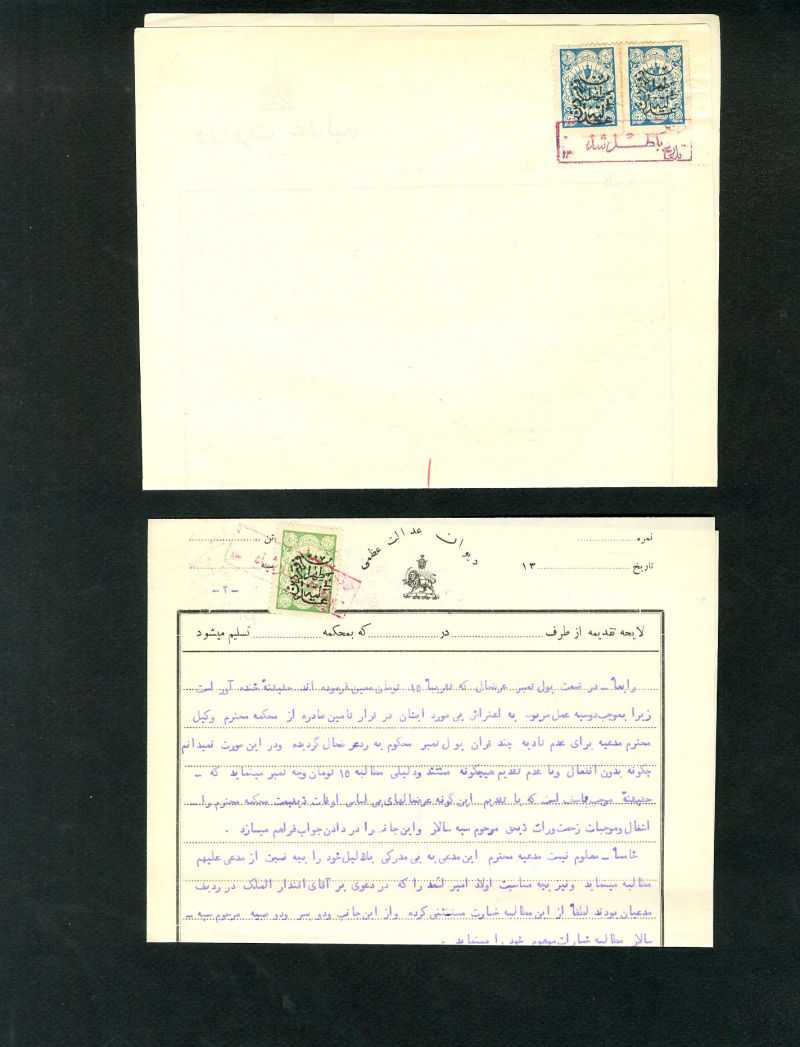 باطل شد
تاریخ
نمره
دیوان عدالت عظمی
تاریخ ۱۳
ـ۲ـ
لایحه تقدیمه از طرف در که بمحکمه تسلیم میشود
رابعاً ـ در قسمت پول تمبر عرضحال که تقریباً ۱۵ تومان معین فرموده اند حقیقتهً خنده آور است
زیرا بموجب دوسیه عمل مربوط به اعتراض بی مورد ایشان در قرار تامین صادره از محکمه محترم وکیل
محترم مدعیه برای عدم تادیه چند قران پول تمبر محکوم به رد عرضحال گردیده ودر این صورت نمیدانم
چگونه بدون انفعال وبا عدم تقدیم هیچگونه مستند ودلیلی مطالبه ۱۵ تومان وجه تمبر مینماید که ـ
حقیقتهً موجب تاسف است که با تقدیم این گونه عرضحالهای بی اساس اوقات ذیقیمت محکمه محترم را ـ
اشغال وموجبات زحمت وراث ذیحق مرحوم سپه سالار واین جانب را در دادن جواب فراهم میسازد .
خامساً ـ معلوم نیست مدعیه محترم این مدعی به بی مدرک بلا دلیل خود را بچه نسبت از مدعی علیهم
مطالبه مینماید ونیز بچه مناسبت اولاد امیر اسعد را که در دعوی بر آقای اقتدار الملک در ردیف
مدعیان بودند لطفاً از این مطالبه خسارت مستثنی کرده واز این جانب ودو پسر ودو صبیه مرحوم سپه ـ
سالار مطالبه خسارات موهوم خود را مینماید .